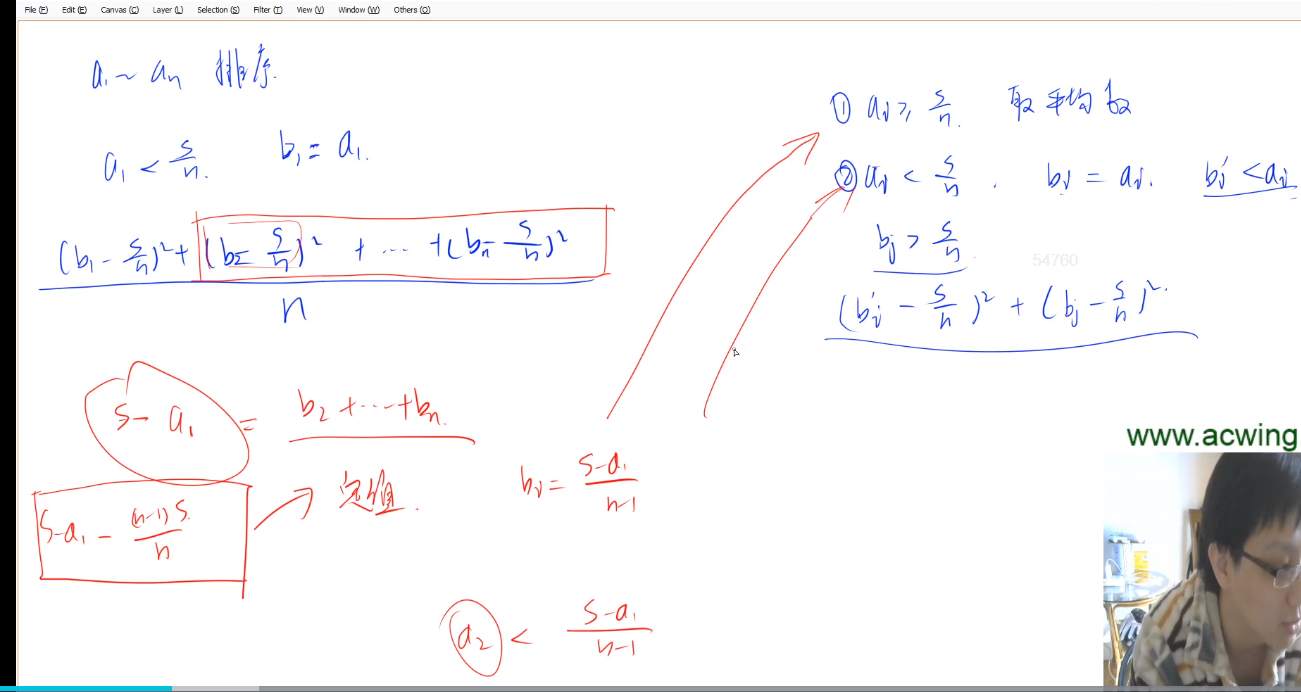 File (F) Edit (E) Canvas (C) Layer (L) Selection (S) Filter (T) View (V) Window (W) Others (O)
a₁ ~ aₙ 排序.
a₁ < s/n. b₁ = a₁.
(b₁ - s/n)² + (b₂ - s/n)² + ... + (bₙ - s/n)²
n
s - a₁ = b₂ + ... + bₙ.
定值.
s - a₁ - (n-1)s/n
bᵢ = s-a₁/n-1
a₂ < s-a₁/n-1
① aᵢ ≥ s/n. 取平均数
② aᵢ < s/n. bᵢ = aᵢ. bᵢ' < aᵢ
bⱼ > s/n.
54760
(bᵢ' - s/n)² + (bⱼ - s/n)².
www.acwing